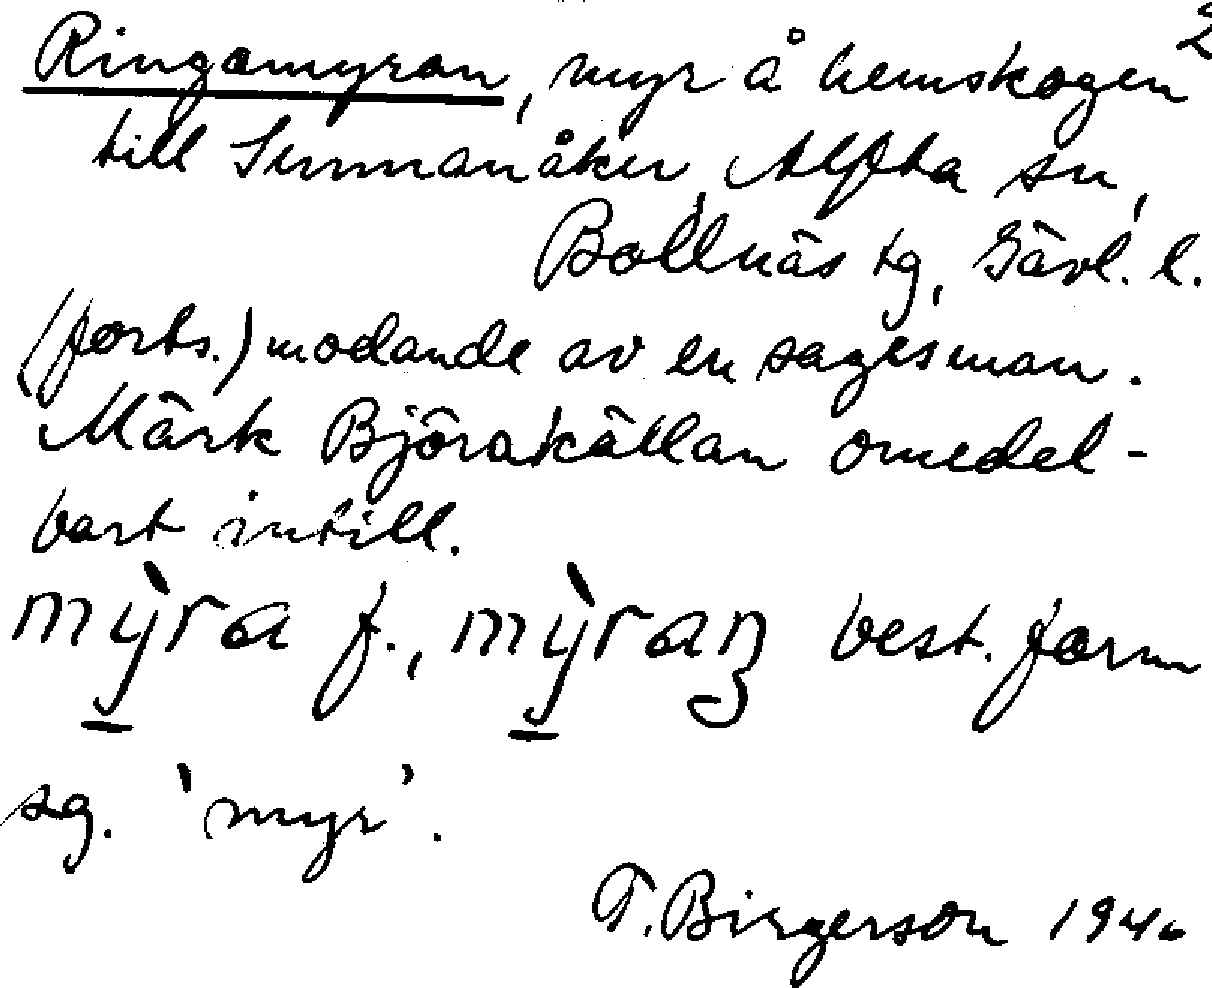 2
Ringamyran, myr å hemskogen
till Sunnanåker, Alfta sn,
Bollnäs tg, Gävl. l.
(forts.) modande av en sagesman.
Märk Björakällan omedel-
bart intill.
mỳra f., mỳraꞃ best. form
sg. 'myr'.
T. Birgerson 1946